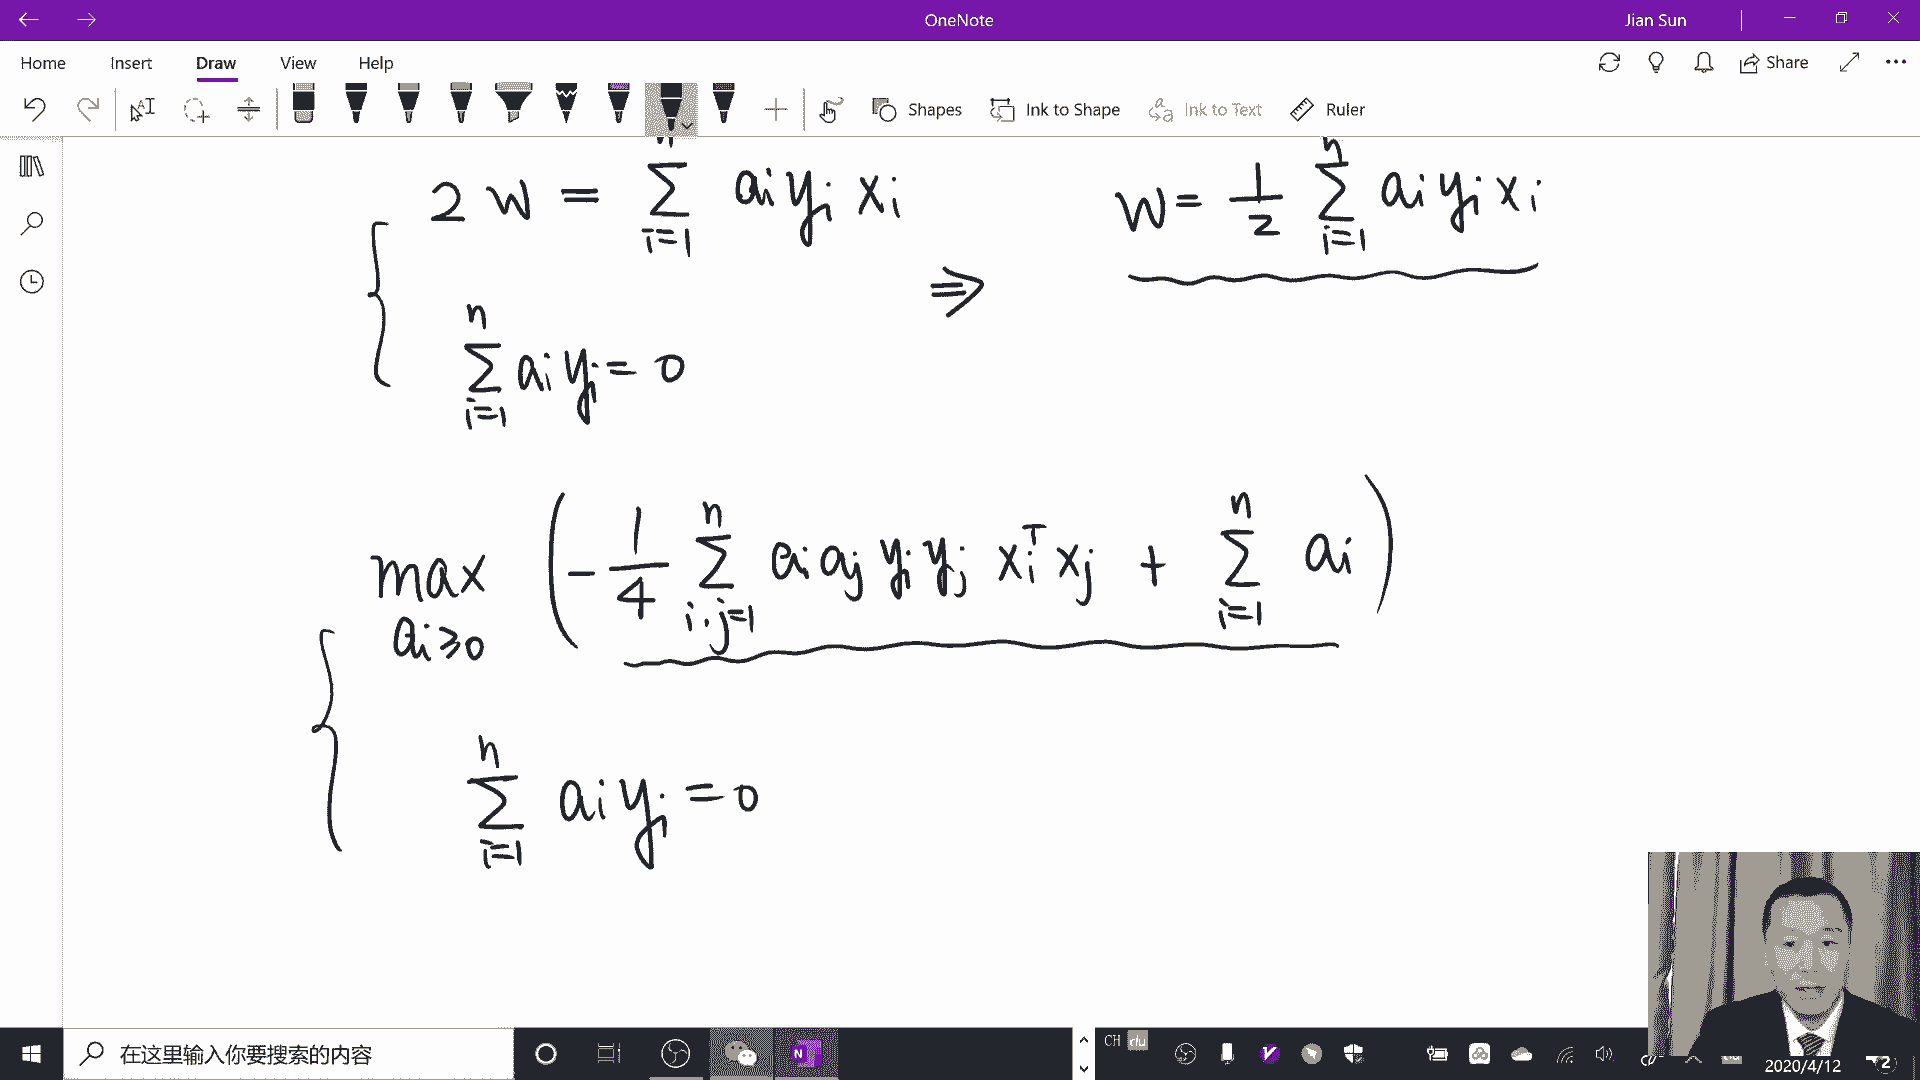 OneNote
Jian Sun
Home Insert Draw View Help
Share
Shapes Ink to Shape Ink to Text Ruler
2 w = \sum_{i=1}^{n} a_i y_i x_i
w = \frac{1}{2} \sum_{i=1}^{n} a_i y_i x_i
⇒
\sum_{i=1}^{n} a_i y_i = 0
max_{a_i ≥ 0} ( - \frac{1}{4} \sum_{i.j=1}^{n} a_i a_j y_i y_j x_i^T x_j + \sum_{i=1}^{n} a_i )
\sum_{i=1}^{n} a_i y_i = 0
在这里输入你要搜索的内容
CH
2020/4/12
2